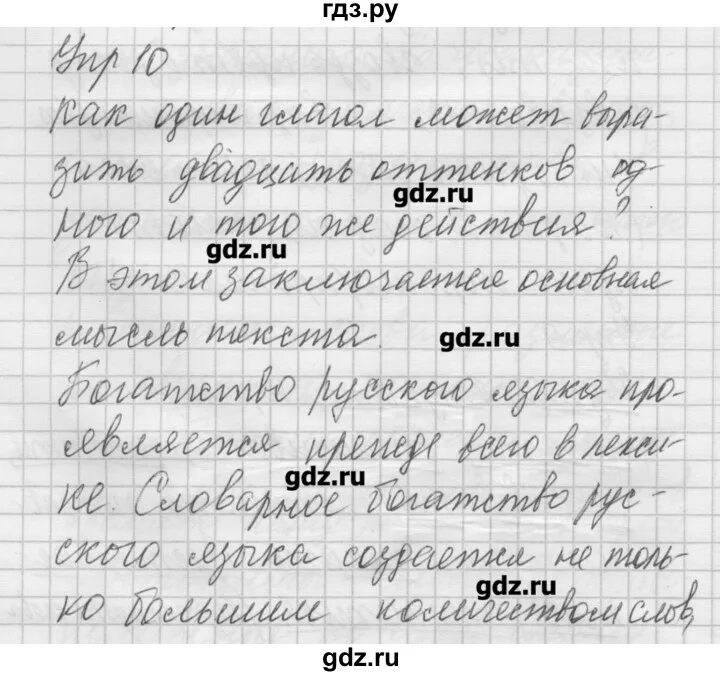 гдз.ру
Упр 10
как один глагол может выра-
зить двадцать оттенков од-
gdz.ru
ного и того же действия?
gdz.ru
В этом заключается основная
мысль текста.
gdz.ru
Богатство русского языка про-
является прежде всего в лекси-
gdz.ru
ке. Словарное богатство рус-
ского языка создается не толь-
gdz.ru
ко большим количеством слов,
gdz.ru